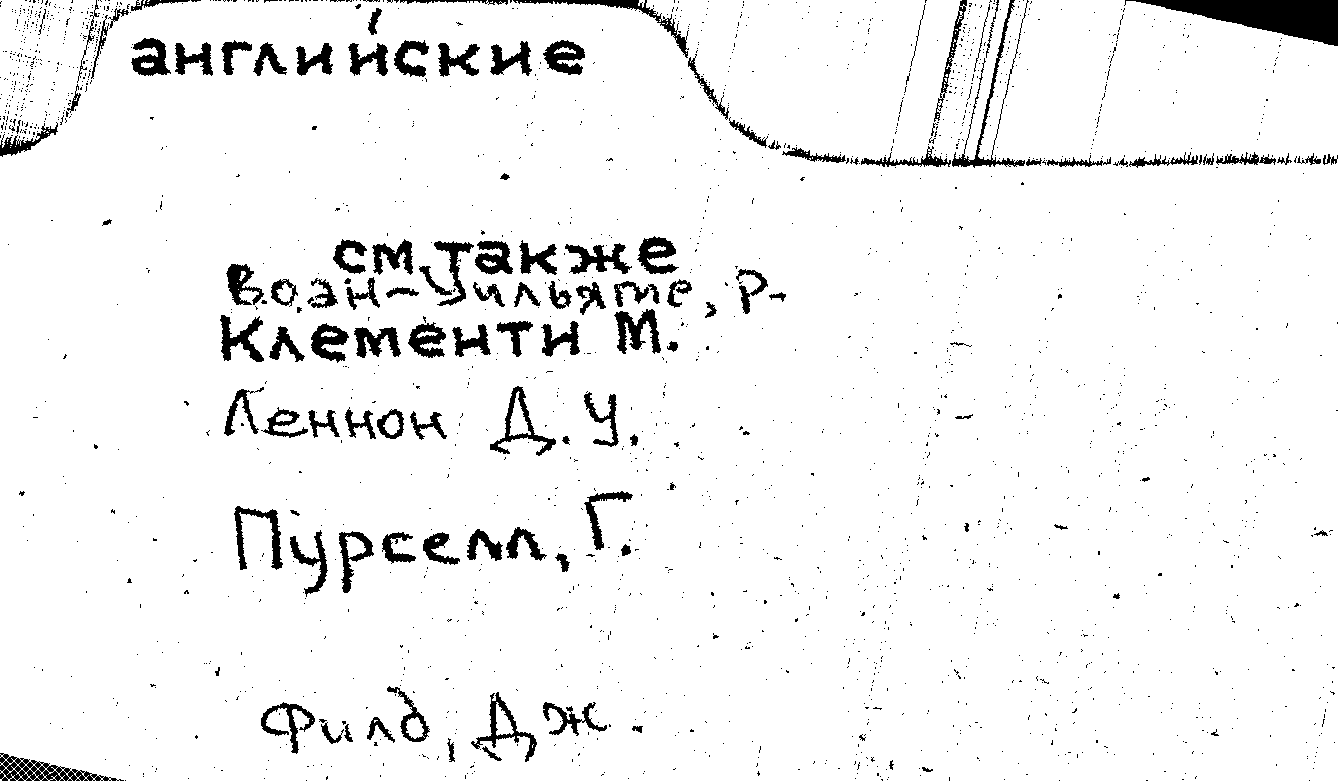 английские
см. также
Воан-Уильямс, Р.
Клементи М.
Леннон Д. У.
Пурселл, Г.
Филд, Дж.